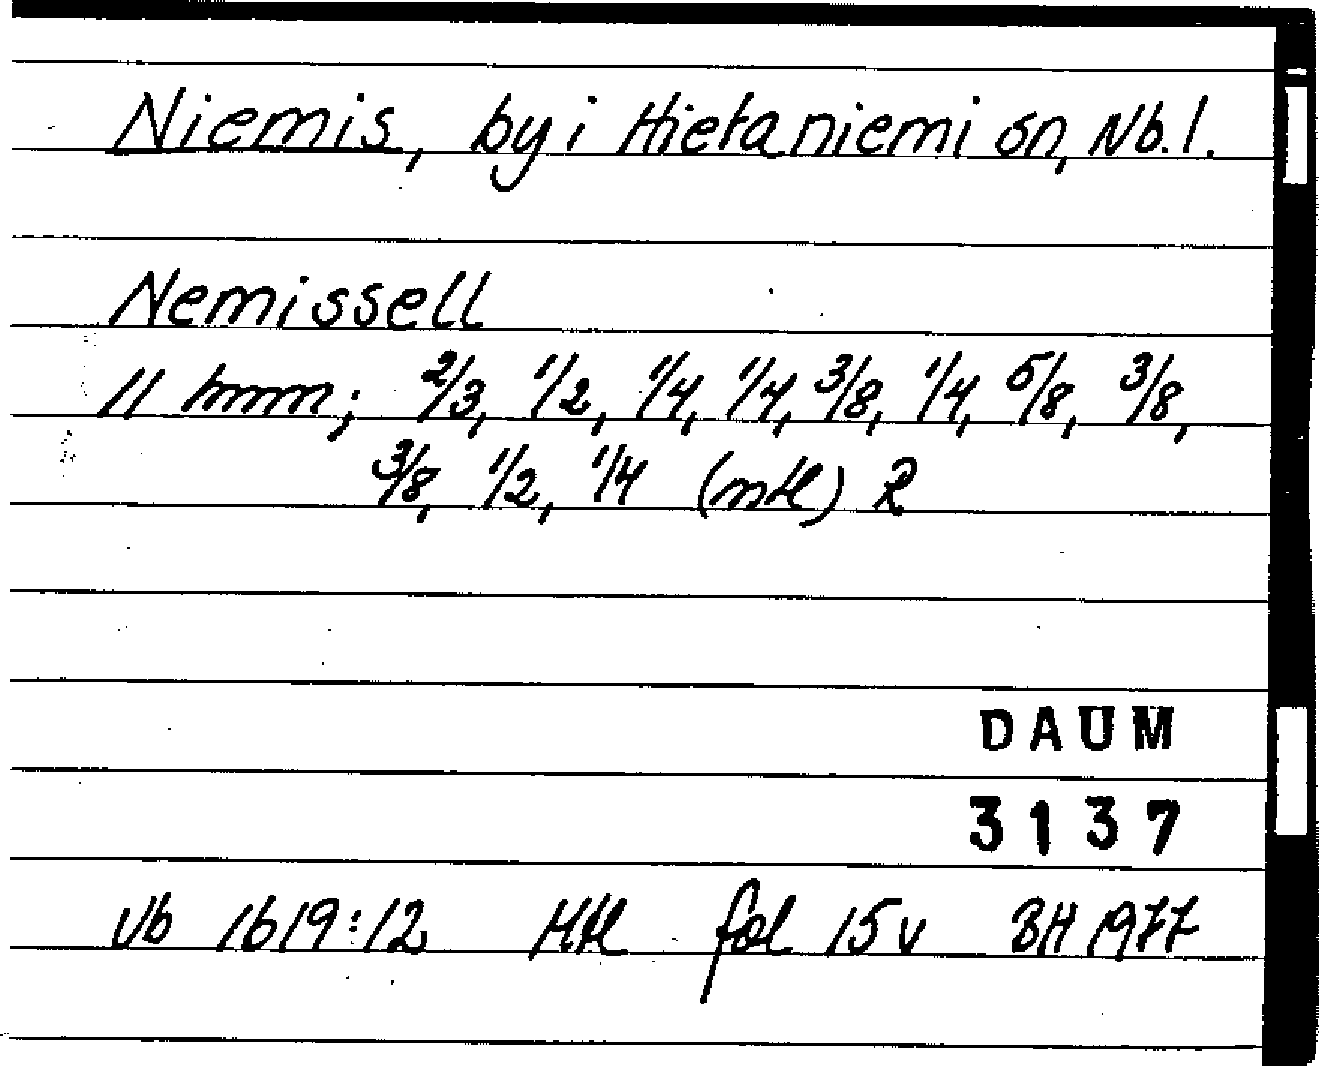 Niemis, by i Hietaniemi sn, Nb.l.
Nemissell
11 hmm; 2/3, 1/2, 1/4, 1/4, 3/8, 1/4, 5/8, 3/8,
3/8, 1/2, 1/4 (mtl) R
DAUM
3137
Vb 1619:12 Mtl fol 15v BH 1977